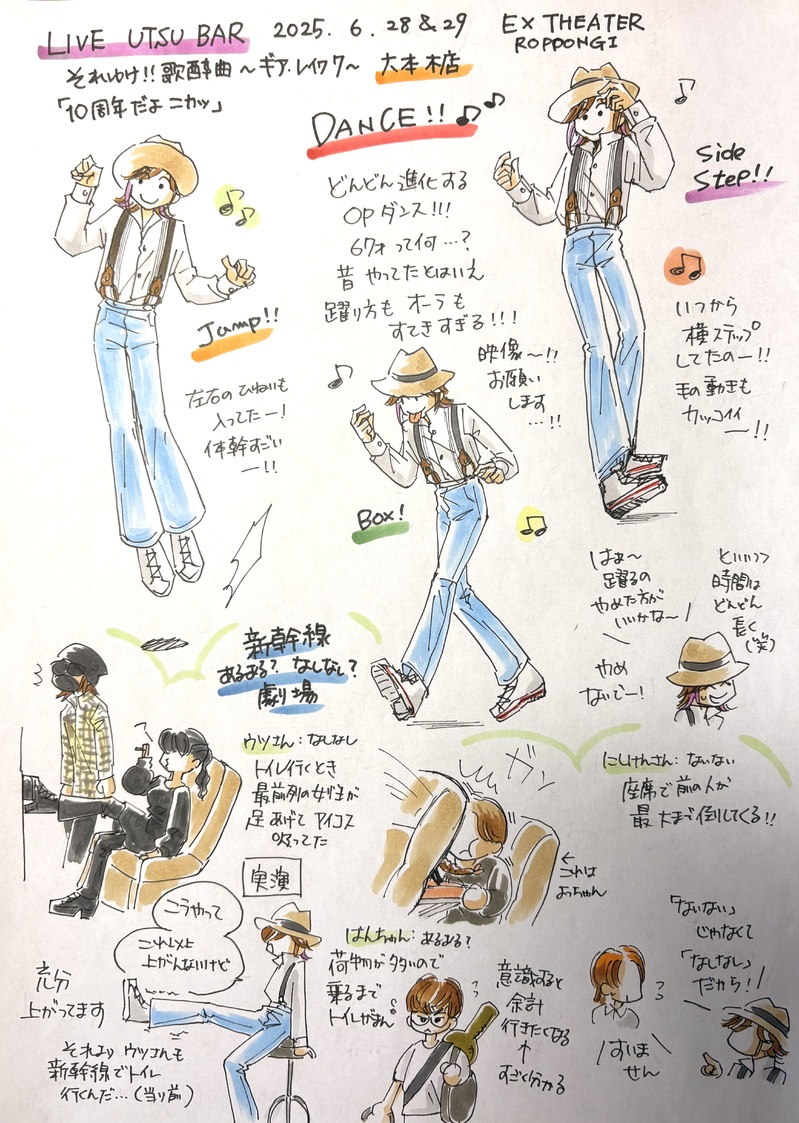 LIVE UTSU BAR 2025. 6. 28 & 29 EX THEATER
ROPPONGI
それゆけ!!歌酔曲 ～ギア・レイワ7～ 大本木店
「10周年だよ ニカッ」
DANCE!!
どんどん進化する
OPダンス!!!
67才って何…?
昔やってたとはいえ
踊り方もオーラも
すてきすぎる!!!
映像～!!
お願い
します
…!!
Side
Step!!
いつから
横ステップ
してたのー!!
手の動きも
カッコイイ
ー!!
Jump!!
左右のひねりも
入ってたー!
体幹すごい
ー!!
Box!
はぁ～
踊るの
やめた方が
いいかな～
といいつつ
時間は
どんどん
長く
(笑)
やめ
ないでー!
新幹線
あるある? なしなし?
劇場
ウツさん:なしなし
トイレ行くとき
最前列の女性が
足あげてアイコス
吸ってた
ガン
にしけんさん:ないない
座席で前の人が
最大まで倒してくる!!
←これは
よっちゃん
実演
こうやって
これ以上
上がんないけど
充分
上がってます
それよりウツさんも
新幹線でトイレ
行くんだ…(当り前)
はんちゃん:あるある?
荷物が多いので
乗るまで
トイレがまん
意識すると
余計
行きたくなる
↑
すごく分かる
「ないない」
じゃなくて
「なしなし」
だから!
すいま
せん